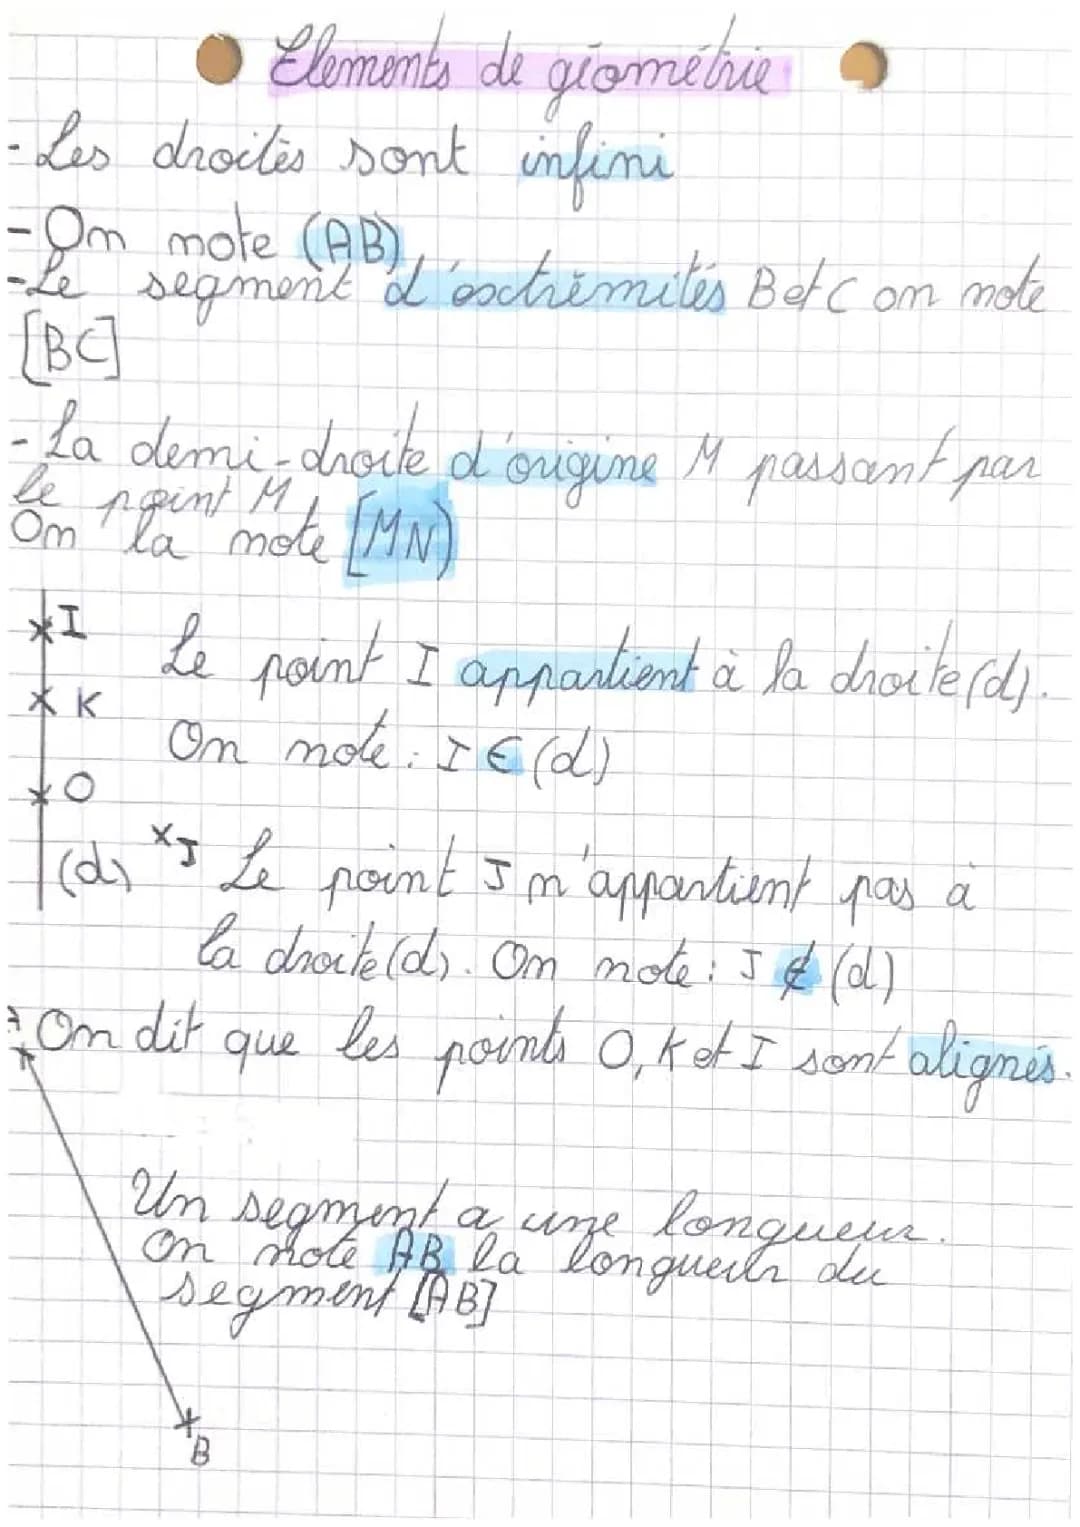 Elements de géométrie
- Les droites sont infini
- On note (AB)
- Le segment d'extrémités B et C on note
[BC]
- La demi-droite d'origine M passant par
le point M
On la note [MN)
I
Le point I appartient à la droite (d).
K
On note : I ∈ (d)
O
(d)
J
Le point J n'appartient pas à
la droite (d). On note : J ∉ (d)
On dit que les points O, K et I sont alignés.
A
Un segment a une longueur.
On note AB la longueur du
segment [AB]
B